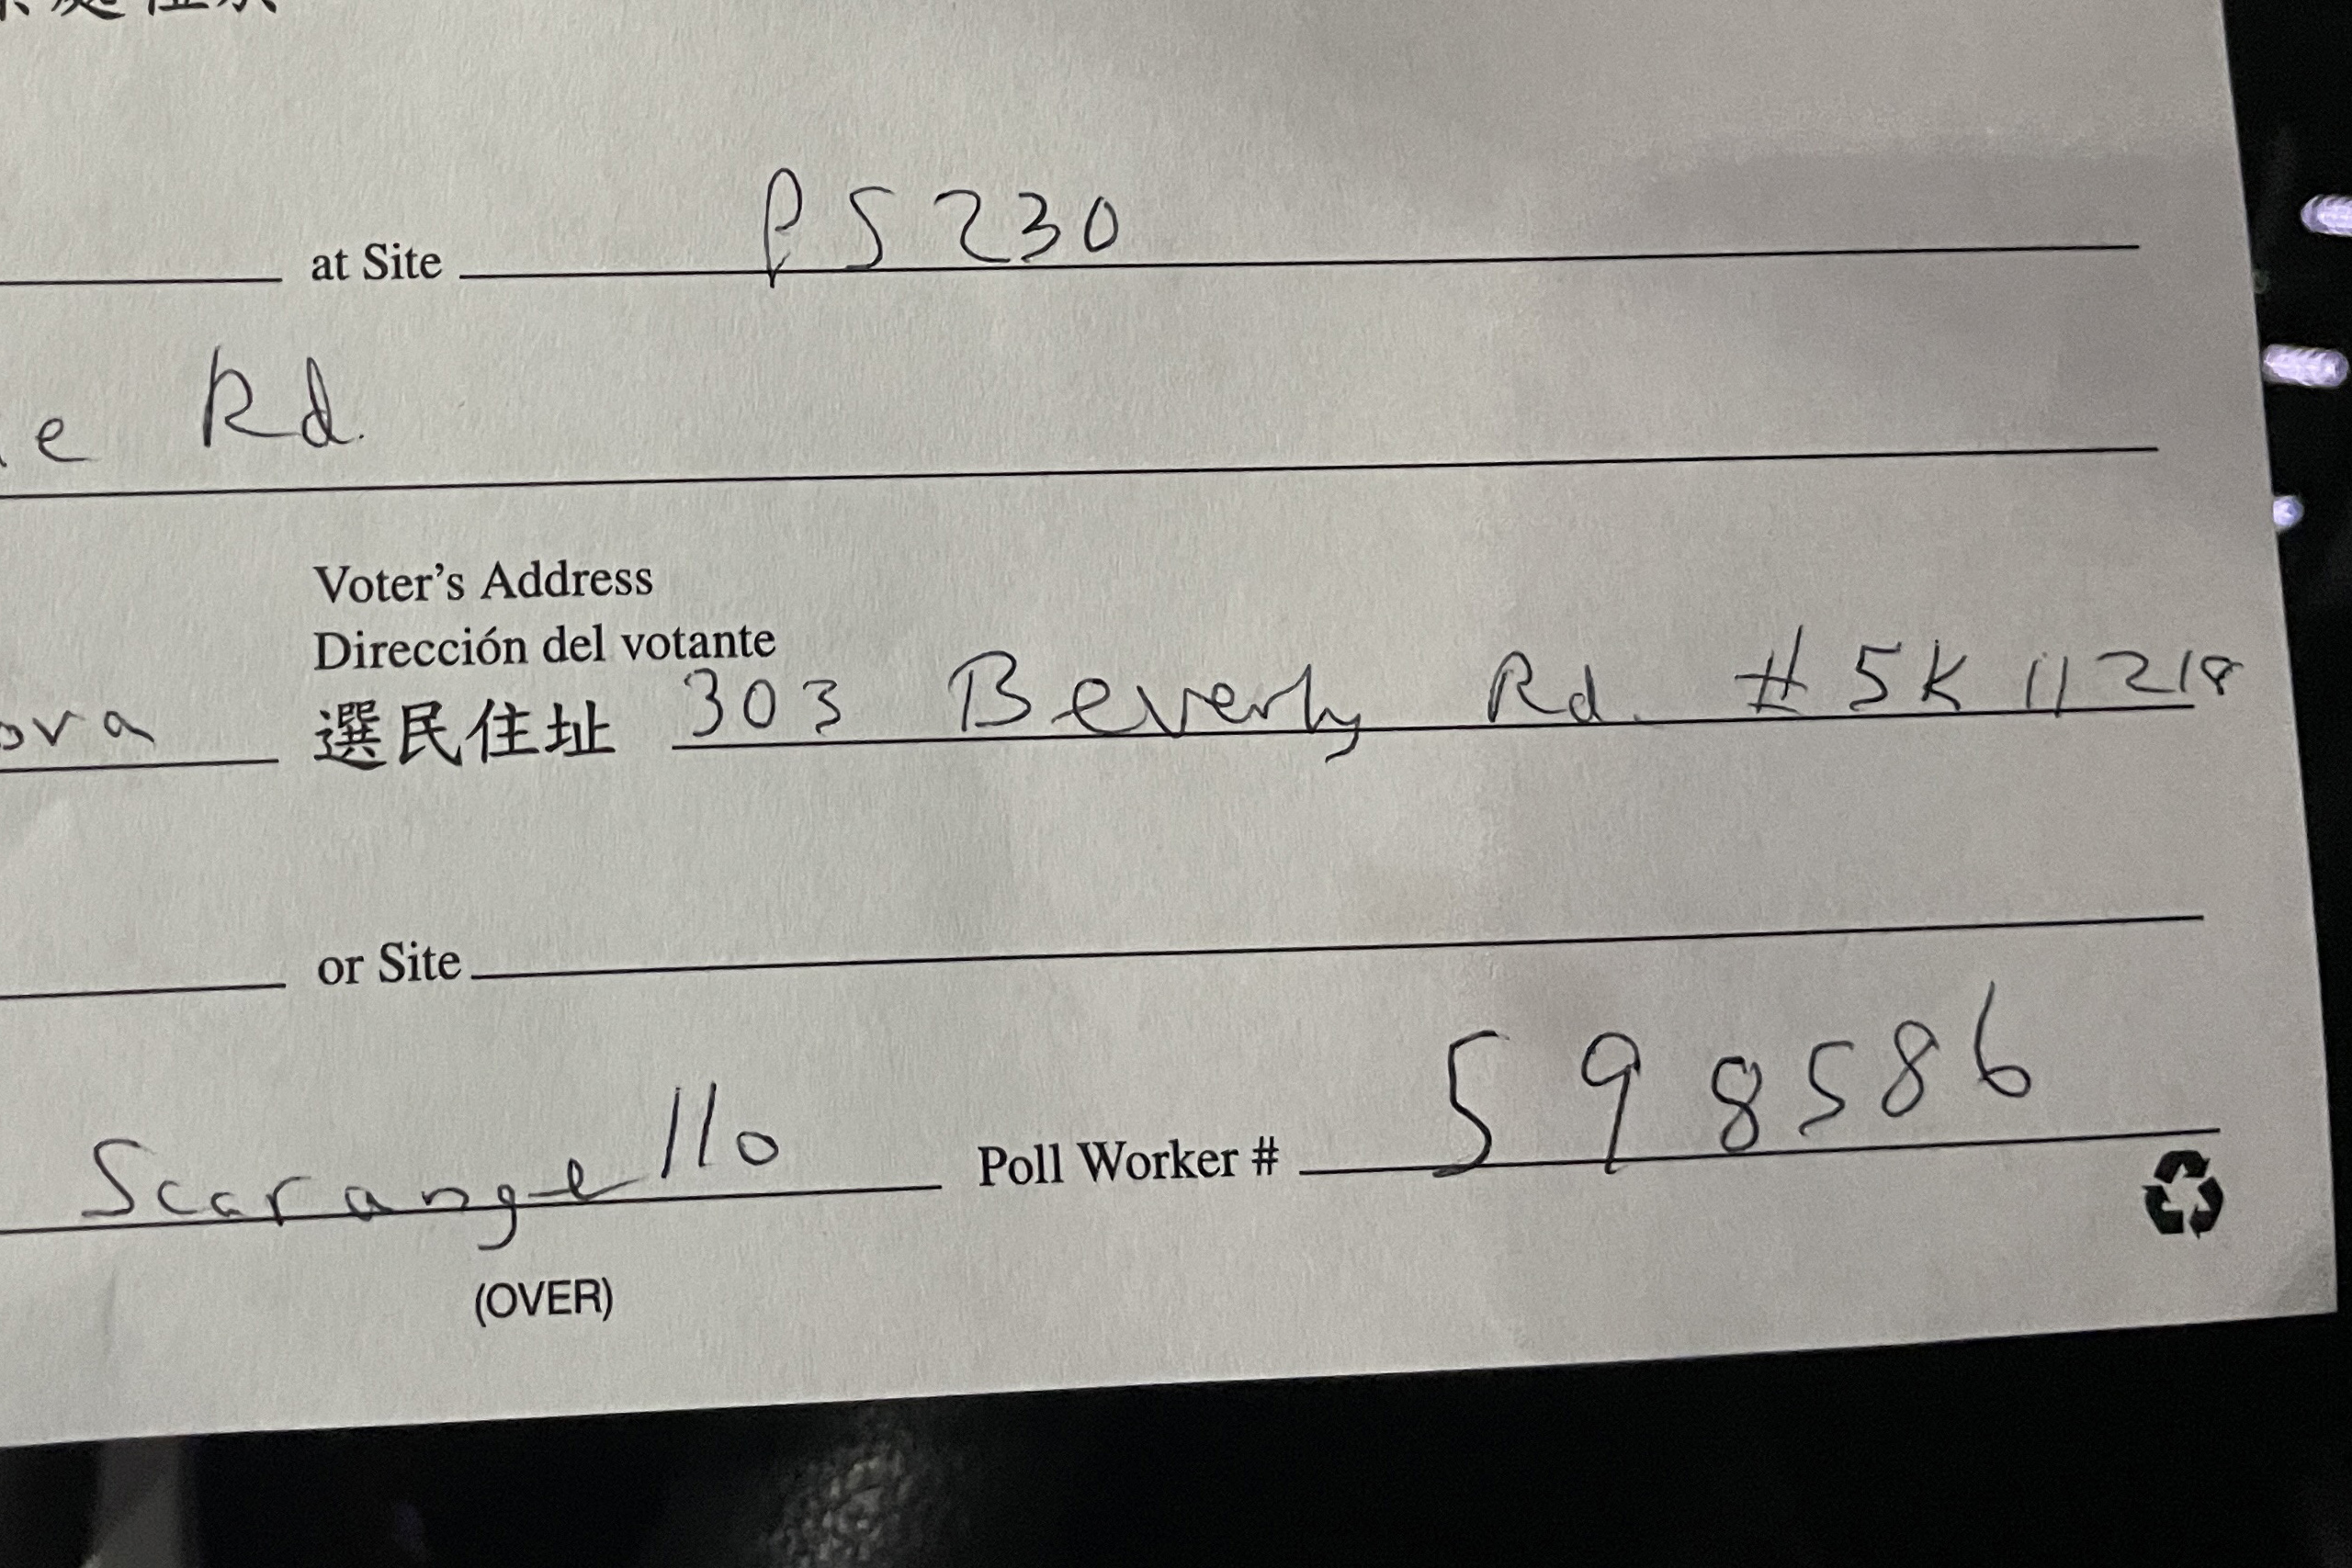 at Site PS 230
e Rd.
Voter's Address
Dirección del votante
ova 選民住址 303 Beverly Rd. #5K 11218
or Site
Scarangello Poll Worker # 598586
(OVER)